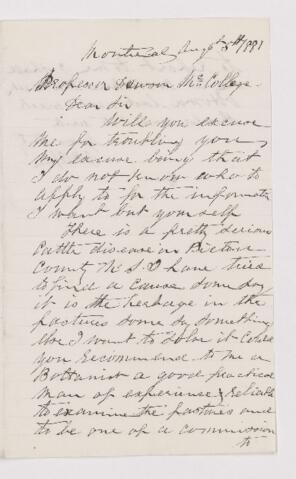 Montreal Augt 5th/1881
Professor Dawson McCollege
Dear Sir
Will you excuse
me for troubling you,
my excuse being that
I do not know who to
apply to for the informatn
I want but yourself
There is a pretty serious
Cattle disease in Pictou
County N.S. I have tried
to find a cause some say
it is the herbage in the
pastures some say something
else I want to solve it Could
you recommend to me a
Bottanist a good practical
man of experience & reliable
to examine the pastures and
to be one of a commission
to